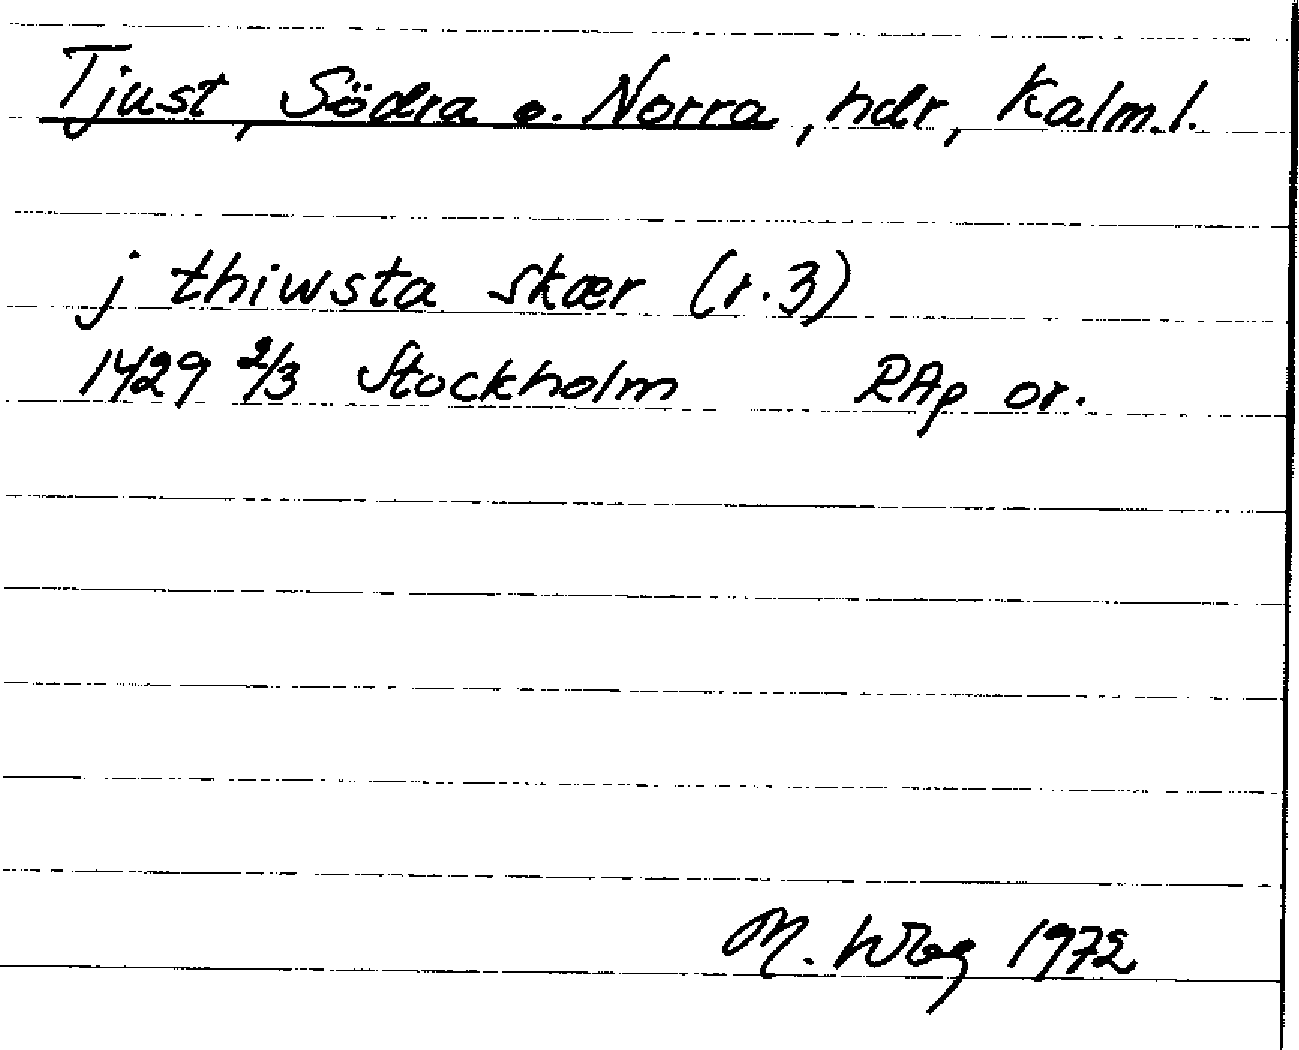 Tjust, Södra o. Norra, hdr, Kalm. l.
j thiwsta skær (r. 3)
1429 2/3 Stockholm RAp or.
M. 1972